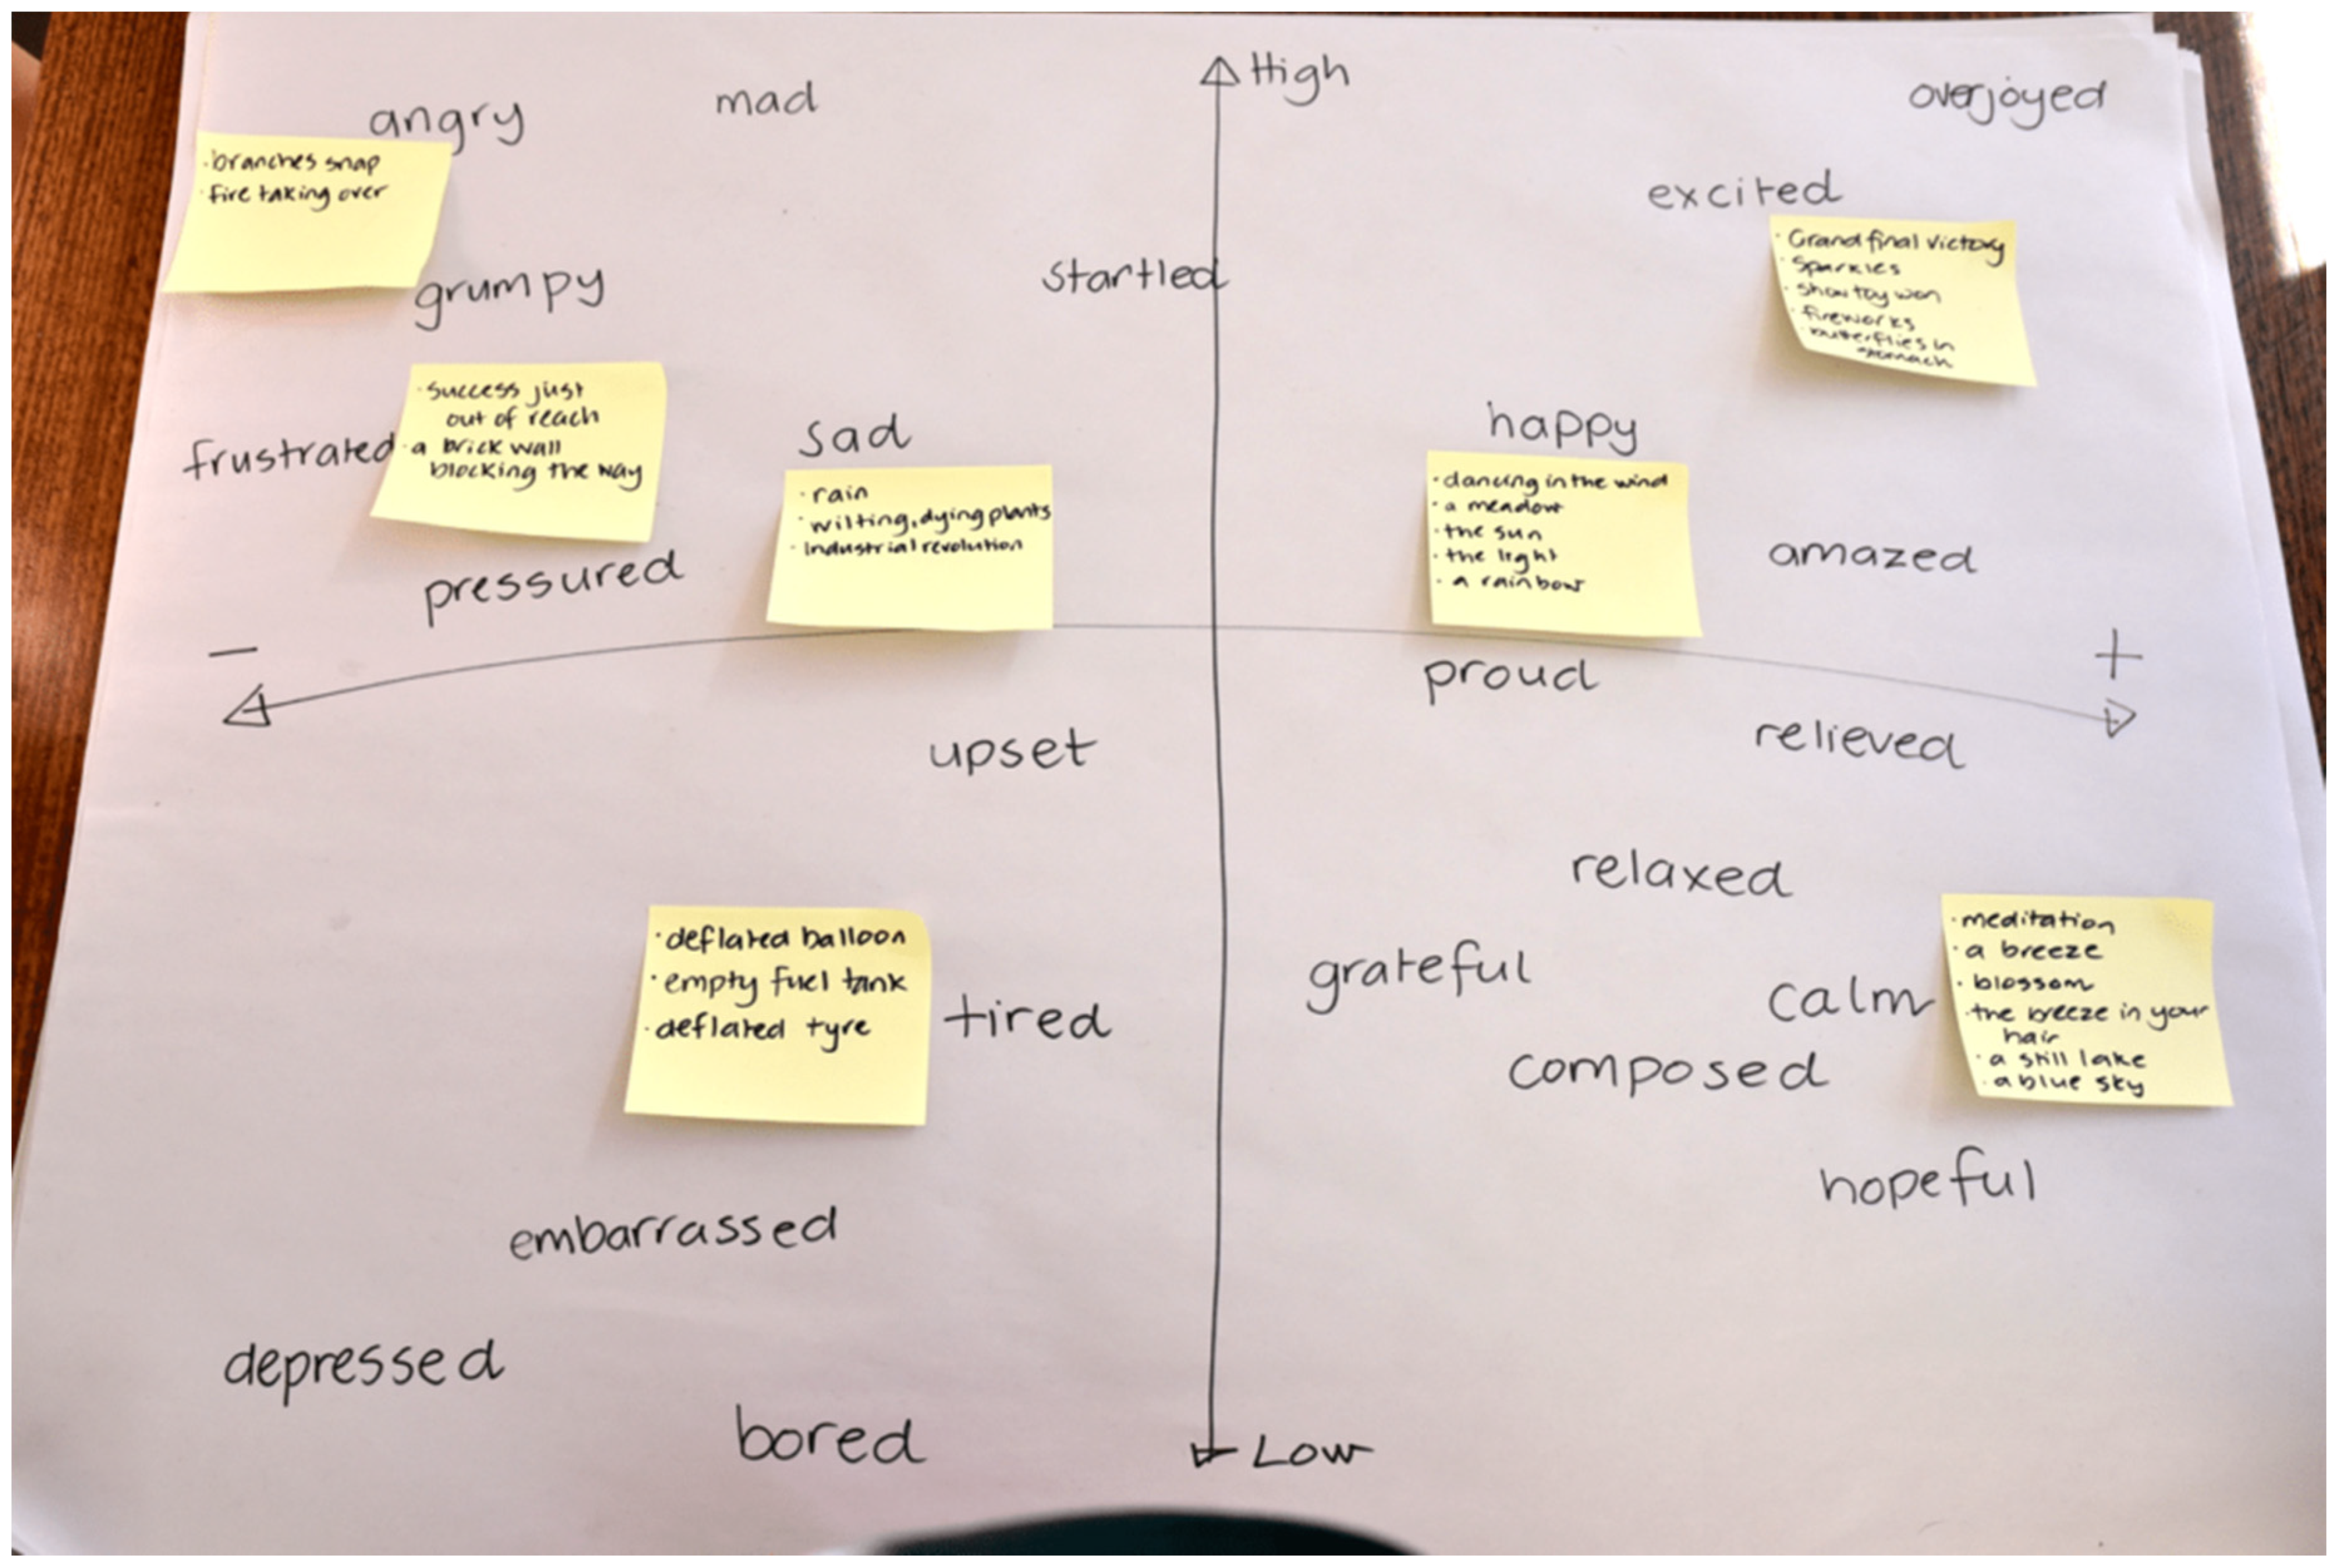 High
angry
mad
overjoyed
· branches snap
· fire taking over
excited
· Grand final victory
· Sparkles
· show toy won
· fireworks
· butterflies in
stomach
grumpy
startled
· success just
out of reach
· a brick wall
blocking the way
frustrated
sad
· rain
· wilting, dying plants
· Industrial revolution
happy
· dancing in the wind
· a meadow
· the sun
· the light
· a rainbow
amazed
pressured
−
+
proud
upset
relieved
relaxed
· deflated balloon
· empty fuel tank
· deflated tyre
tired
grateful
calm
· meditation
· a breeze
· blossom
· the breeze in your
hair
· a still lake
· a blue sky
composed
hopeful
embarrassed
depressed
bored
Low